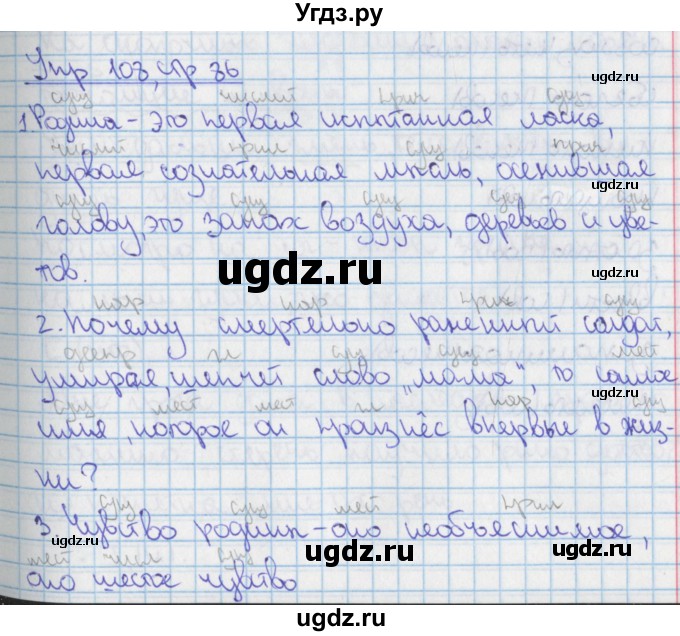 Угдз.ру
Упр 103, стр 36
сущ числит прич сущ
1. Родина - это первая испытанная ласка,
числит прил сущ прич
первая сознательная мысль, осенившая
сущ сущ сущ сущ сущ
голову, это запах воздуха, деревьев и цве-
тов.
ugdz.ru
нар нар прич сущ
2. Почему смертельно раненный солдат,
деепр гл сущ сущ мест
умирая, шепчет слово „мама", то самое
сущ мест мест гл нар сущ
имя, которое он произнёс впервые в жиз-
ни?
сущ сущ мест прил
3. Чувство родины - оно необъяснимое,
мест числ сущ
оно шестое чувство
ugdz.ru
ugdz.ru
ugdz.ru
ugdz.ru
ugdz.ru
ugdz.ru
ugdz.ru
ugdz.ru